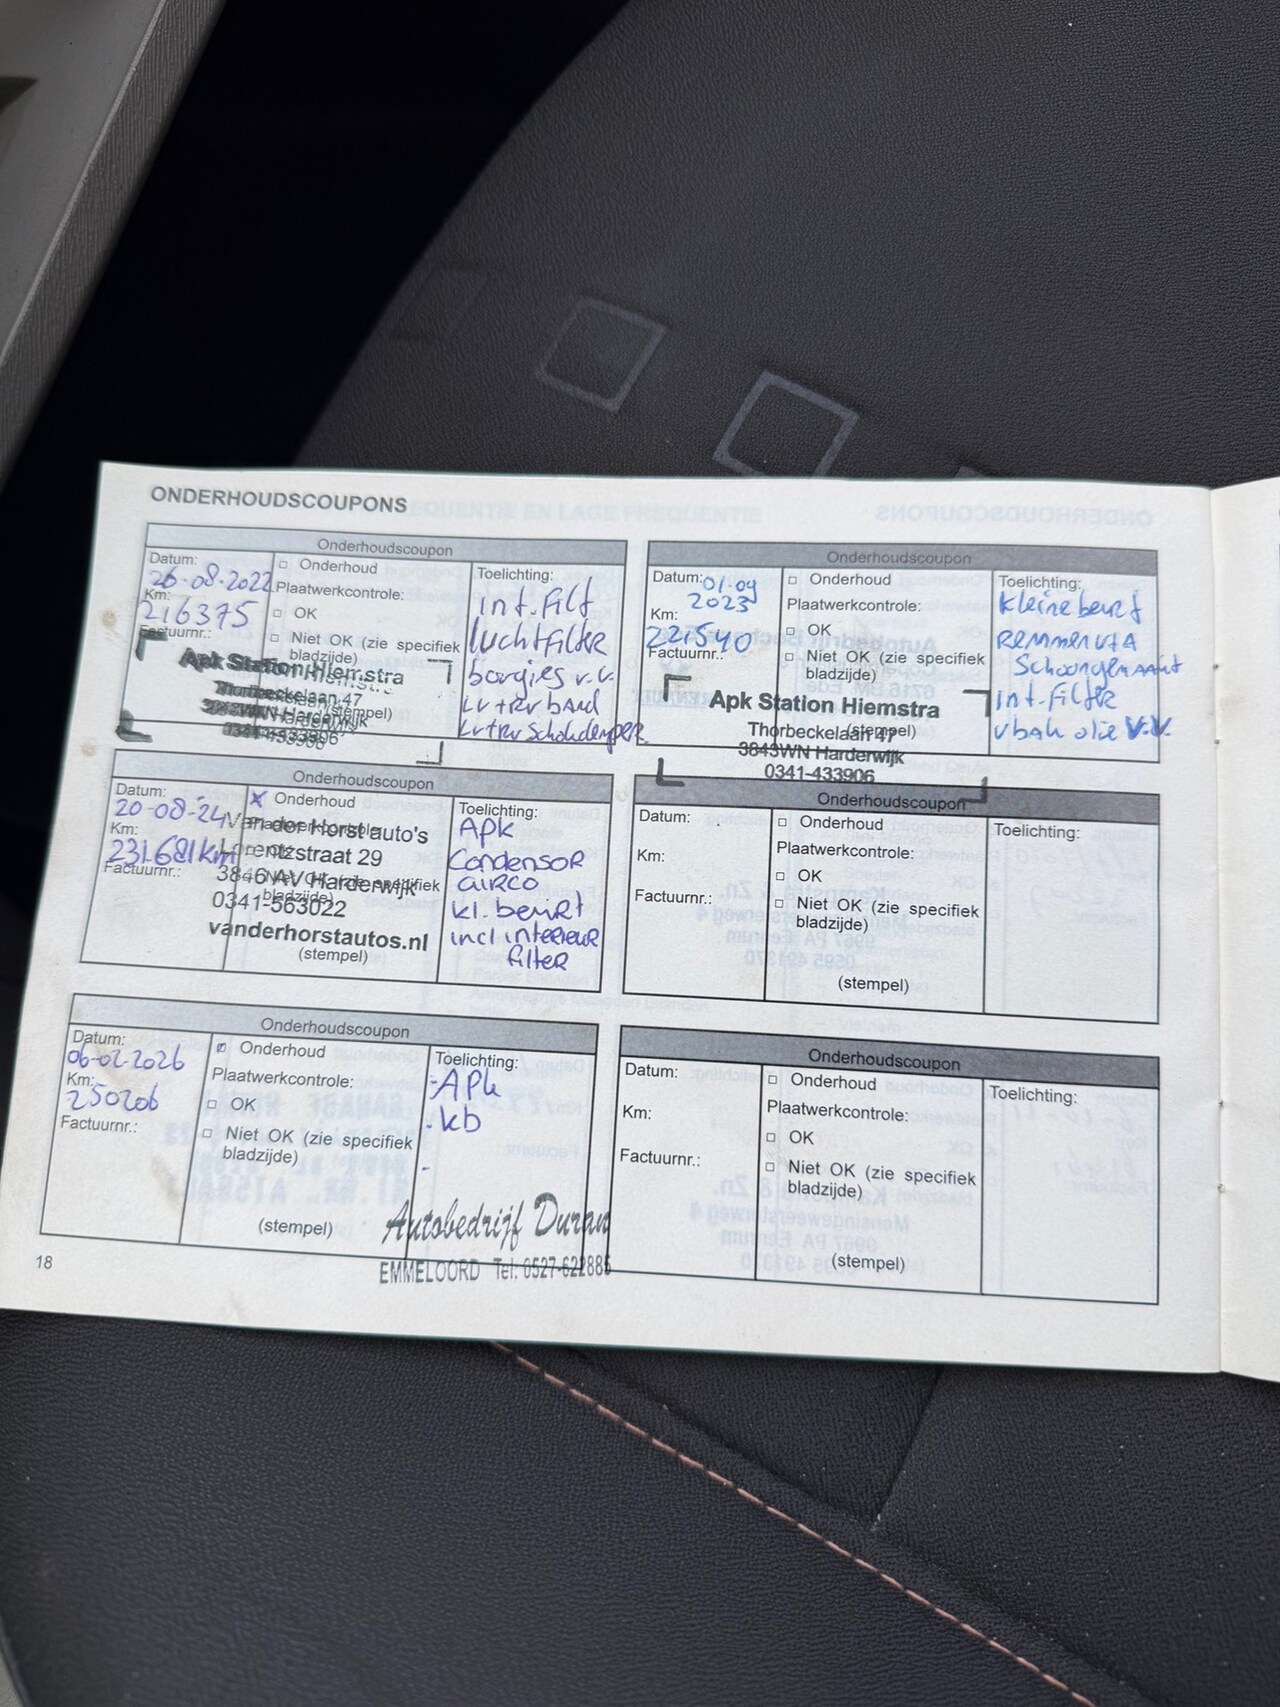 ONDERHOUDSCOUPONS
Onderhoudscoupon
Datum:
26-08-2022
Km:
216375
Factuurnr.:
Onderhoud
Plaatwerkcontrole:
OK
Niet OK (zie specifiek
bladzijde)
(stempel)
Toelichting:
int. filt
luchtfilter
bougies v.v.
LV+RV band
LV+RV Schokdemper
Apk Station Hiemstra
Thorbeckelaan 47
3843WN Harderwijk
0341-433906
Onderhoudscoupon
Datum: 01.09
2023
Km:
221540
Factuurnr.:
Onderhoud
Plaatwerkcontrole:
OK
Niet OK (zie specifiek
bladzijde)
(stempel)
Toelichting:
kleine beurt
Remmen v+A
Schoongemaakt
int. Filter
vbak olie V.V.
Apk Station Hiemstra
Thorbeckelaan 47
3843WN Harderwijk
0341-433906
Onderhoudscoupon
Datum:
20-08-24
Km:
231.681km
Factuurnr.:
x Onderhoud
Van der Horst auto's
Lorentzstraat 29
3846 AV Harderwijk
0341-563022
vanderhorstautos.nl
(stempel)
Toelichting:
APK
Condensor
airco
kl. beurt
incl interieur
filter
Onderhoudscoupon
Datum:
Km:
Factuurnr.:
Onderhoud
Plaatwerkcontrole:
OK
Niet OK (zie specifiek
bladzijde)
(stempel)
Toelichting:
Onderhoudscoupon
Datum:
06-02-2026
Km:
250206
Factuurnr.:
Onderhoud
Plaatwerkcontrole:
OK
Niet OK (zie specifiek
bladzijde)
(stempel)
Toelichting:
- APk
- kb
-
Autobedrijf Duran
EMMELOORD Tel: 0527-622885
Onderhoudscoupon
Datum:
Km:
Factuurnr.:
Onderhoud
Plaatwerkcontrole:
OK
Niet OK (zie specifiek
bladzijde)
(stempel)
Toelichting:
18